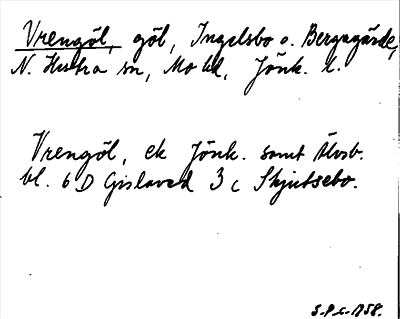 Vrengöl, göl, Ingelsbo o. Bergagärde,
N. Hestra sn, Mo hd, Jönk. l.
Vrengöl, ek Jönk. samt Älvsb.
bl. 6 D Gislaved 3 c Skjutsebo.
S.P.C. 1958.